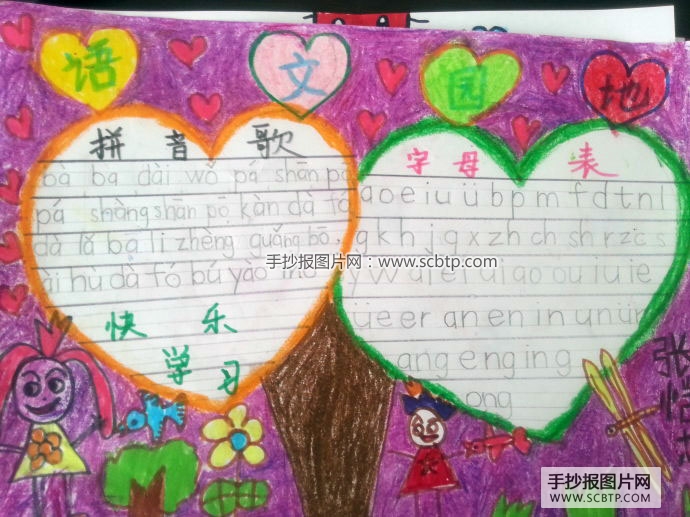 语 文 园 地
拼 音 歌
bà ba dài wǒ pá shān pō
pá shàng shān pō kàn dà fó
dà lǎ bā li zhèng guǎng bō
ài hù dà fó bú yào mō
快 乐
学 习
字 母 表
a o e i u ü b p m f d t n l
g k h j q x z h ch sh r z c s
y w ai ei ui ao ou iu ie
üe er an en in un ün
ang eng ing
ong
手抄报图片网：www.scbtp.com
手抄报图片网
WWW.SCBTP.COM